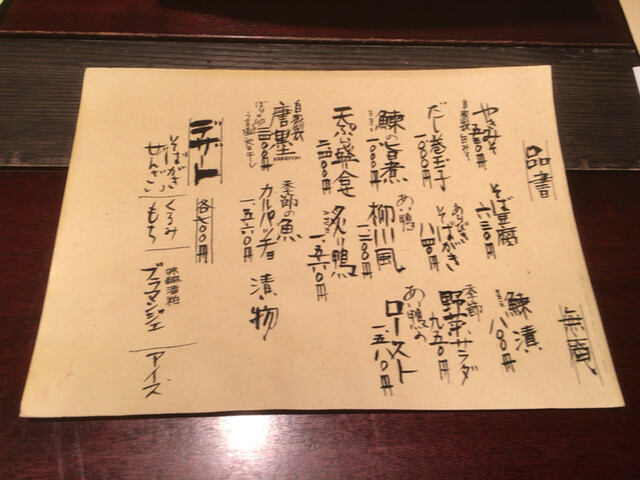 品書
やきみそ
五五〇円
自家製白みそ
そば豆腐
六三〇円
鰊漬
八八〇円
だし巻玉子
一、〇〇〇円
あらびき
そばがき
八四〇円
季節
野菜サラダ
九五〇円
鰊の旨煮
一、〇〇〇円
あい鴨
柳川風
一、二〇〇円
あい鴨の
ロースト
一、五八〇円
天ぷら盛合
炙り鴨
一、五六〇円
自家製
唐墨
KARASUMI
季節の魚
カルパッチョ
一、五六〇円
漬物
デザート
各七〇〇円
そばがき
ぜんざい
くるみ
もち
吟醸酒粕
ブラマンジェ
アイス